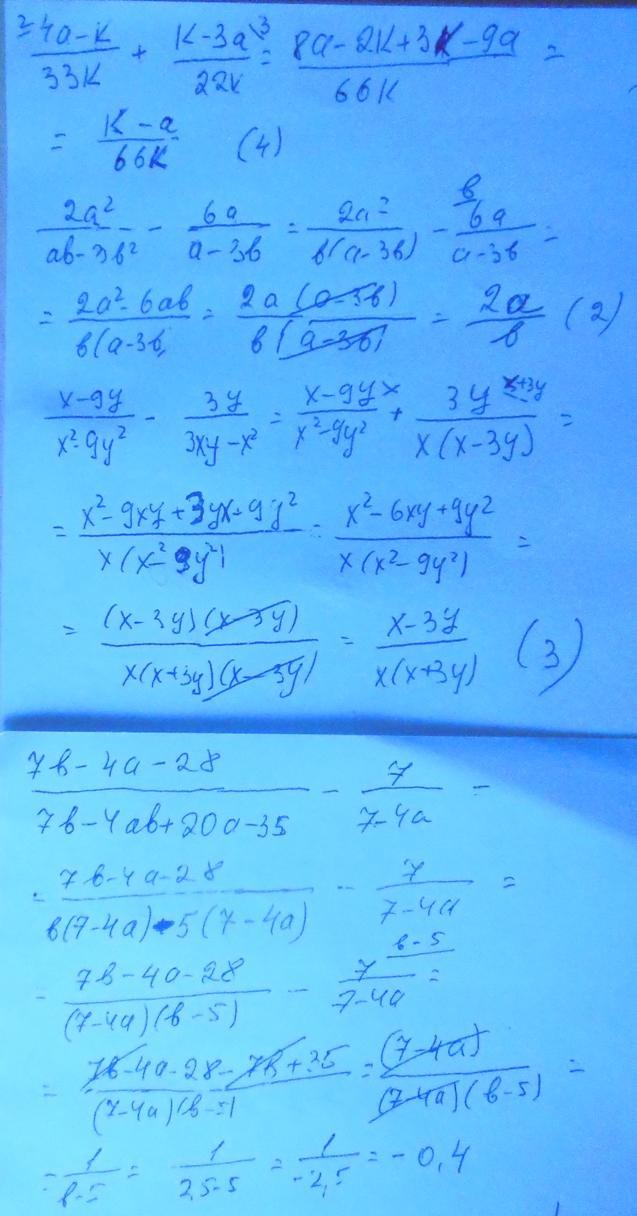 ²4a-k/33k + k-3a\3/22k = 8a-2k+3k-9a/66k =
= k-a/66k (4)
2a²/ab-3b² - 6a/a-3b = 2a²/b(a-3b) - 6a b/a-3b =
= 2a²-6ab/b(a-3b = 2a(a-3b)/b(a-3b) = 2a/b (2)
x-9y/x²-9y² - 3y/3xy-x² = x-9y x/x²-9y² + 3y x+3y/x(x-3y) =
= x²-9xy+3yx+9y²/x(x²-9y²) = x²-6xy+9y²/x(x²-9y²) =
= (x-3y)(x-3y)/x(x+3y)(x-3y) = x-3y/x(x+3y) (3)
7b-4a-28/7b-4ab+20a-35 - 7/7-4a =
= 7b-4a-28/b(7-4a)-5(7-4a) - 7/7-4a =
= 7b-4a-28/(7-4a)(b-5) - 7 b-5/7-4a =
= 7b-4a-28-7b+35/(7-4a)(b-5) = (7-4a)/(7-4a)(b-5) =
= 1/b-5 = 1/2,5-5 = 1/-2,5 = -0,4